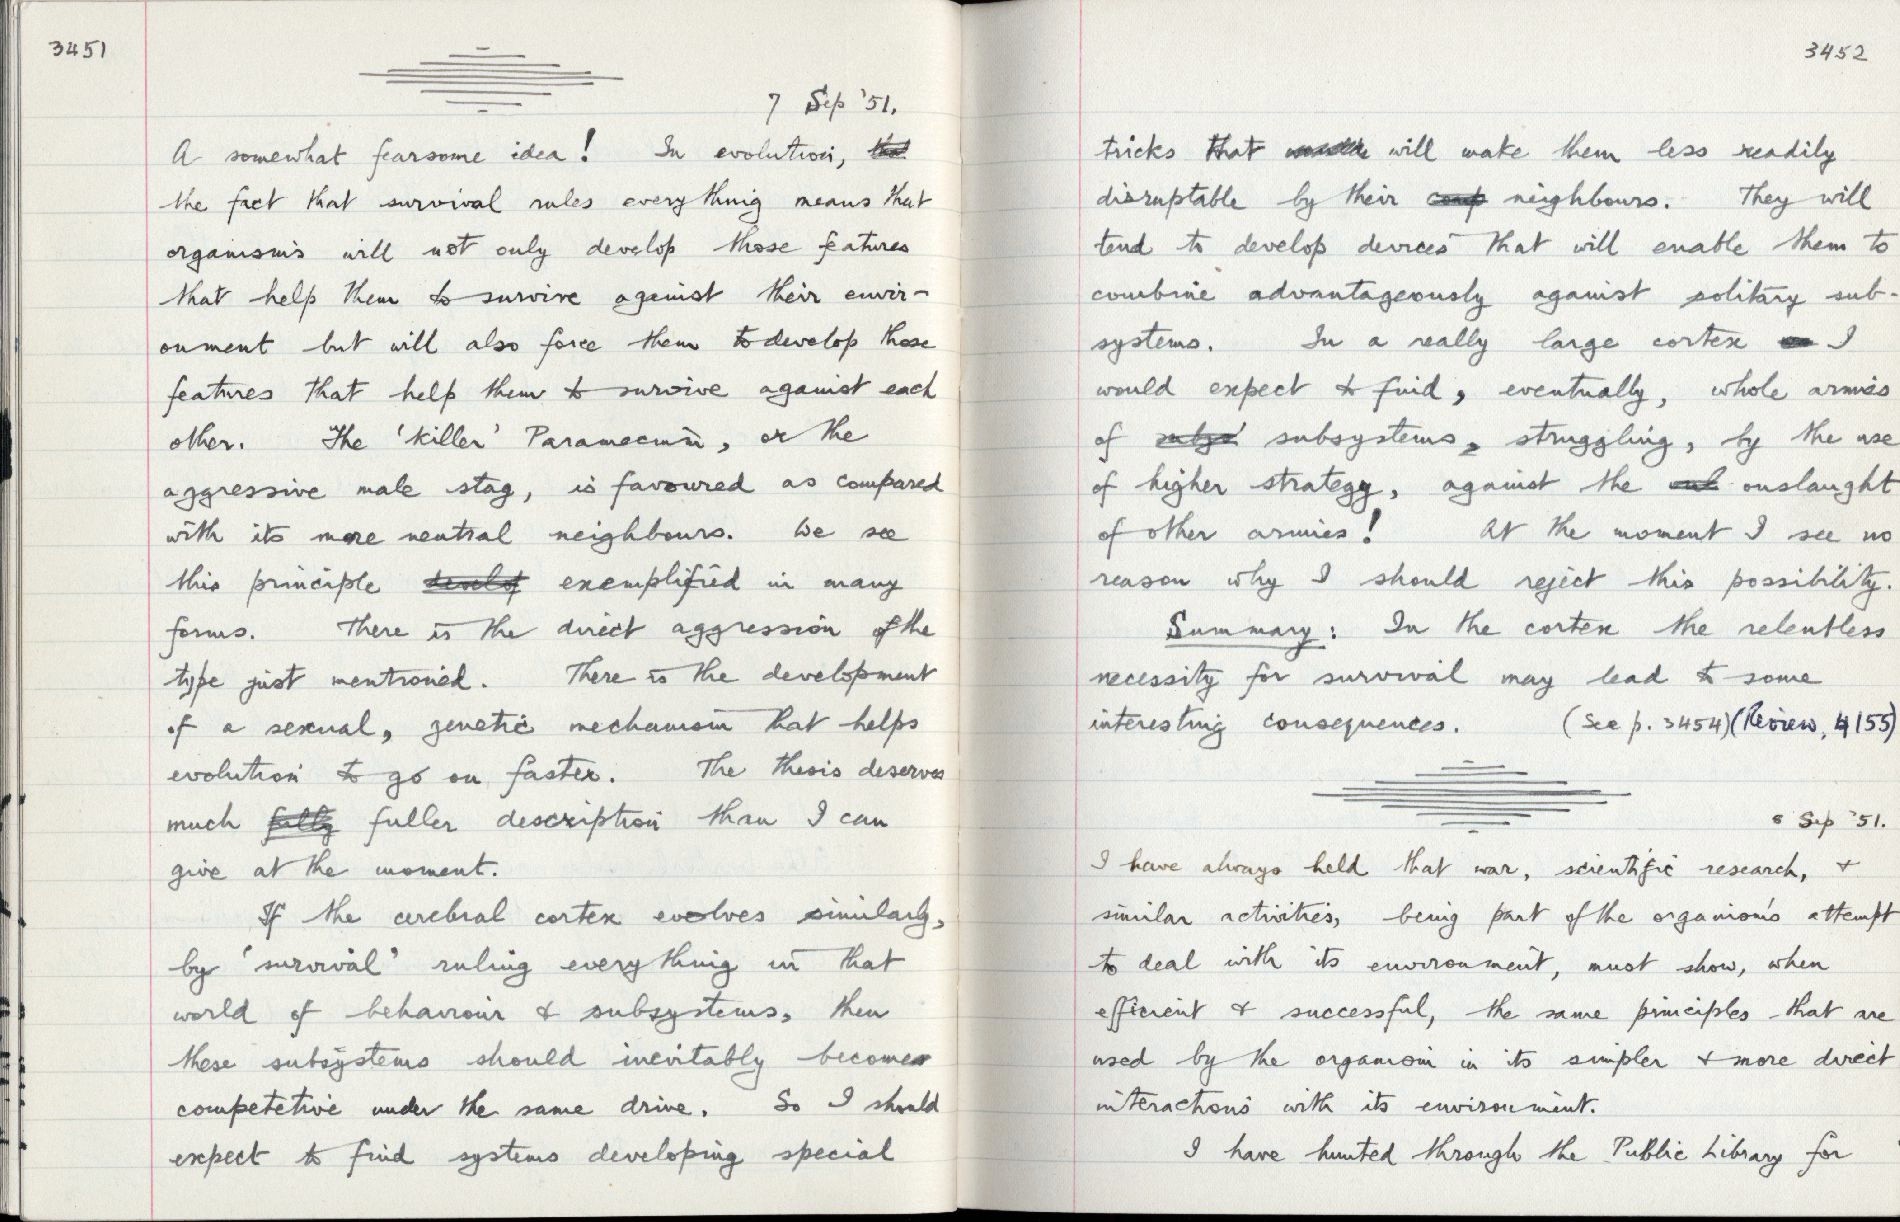 3451
7 Sep '51.
A somewhat fearsome idea! In evolution,
the fact that survival rules everything means that
organisms will not only develop those features
that help them to survive against their envir-
onment but will also force them to develop those
features that help them to survive against each
other. The 'killer' Paramecium, or the
aggressive male stag, is favoured as compared
with its more neutral neighbours. We see
this principle develop exemplified in many
forms. There is the direct aggression of the
type just mentioned. There is the development
of a sexual, genetic mechanism that helps
evolution to go on faster. The thesis deserves
much fully fuller description than I can
give at the moment.
If the cerebral cortex evolves similarly,
by 'survival' ruling everything in that
world of behaviour & subsystems, then
these subsystems should inevitably become
competetive under the same drive. So I should
expect to find systems developing special
3452
tricks that will make them less readily
disruptable by their comp neighbours. They will
tend to develop devices that will enable them to
combine advantageously against solitary sub-
systems. In a really large cortex I
would expect to find, eventually, whole armies
of subsystems, struggling, by the use
of higher strategy, against the onslaught
of other armies! At the moment I see no
reason why I should reject this possibility.
Summary: In the cortex the relentless
necessity for survival may lead to some
interesting consequences. (See p. 3454) (Review, 4155)
Sep '51.
I have always held that war, scientific research, &
similar activities, being part of the organism's attempt
to deal with its environment, must show, when
efficient & successful, the same principles that are
used by the organism in its simpler & more direct
interactions with its environment.
I have hunted through the Public Library for